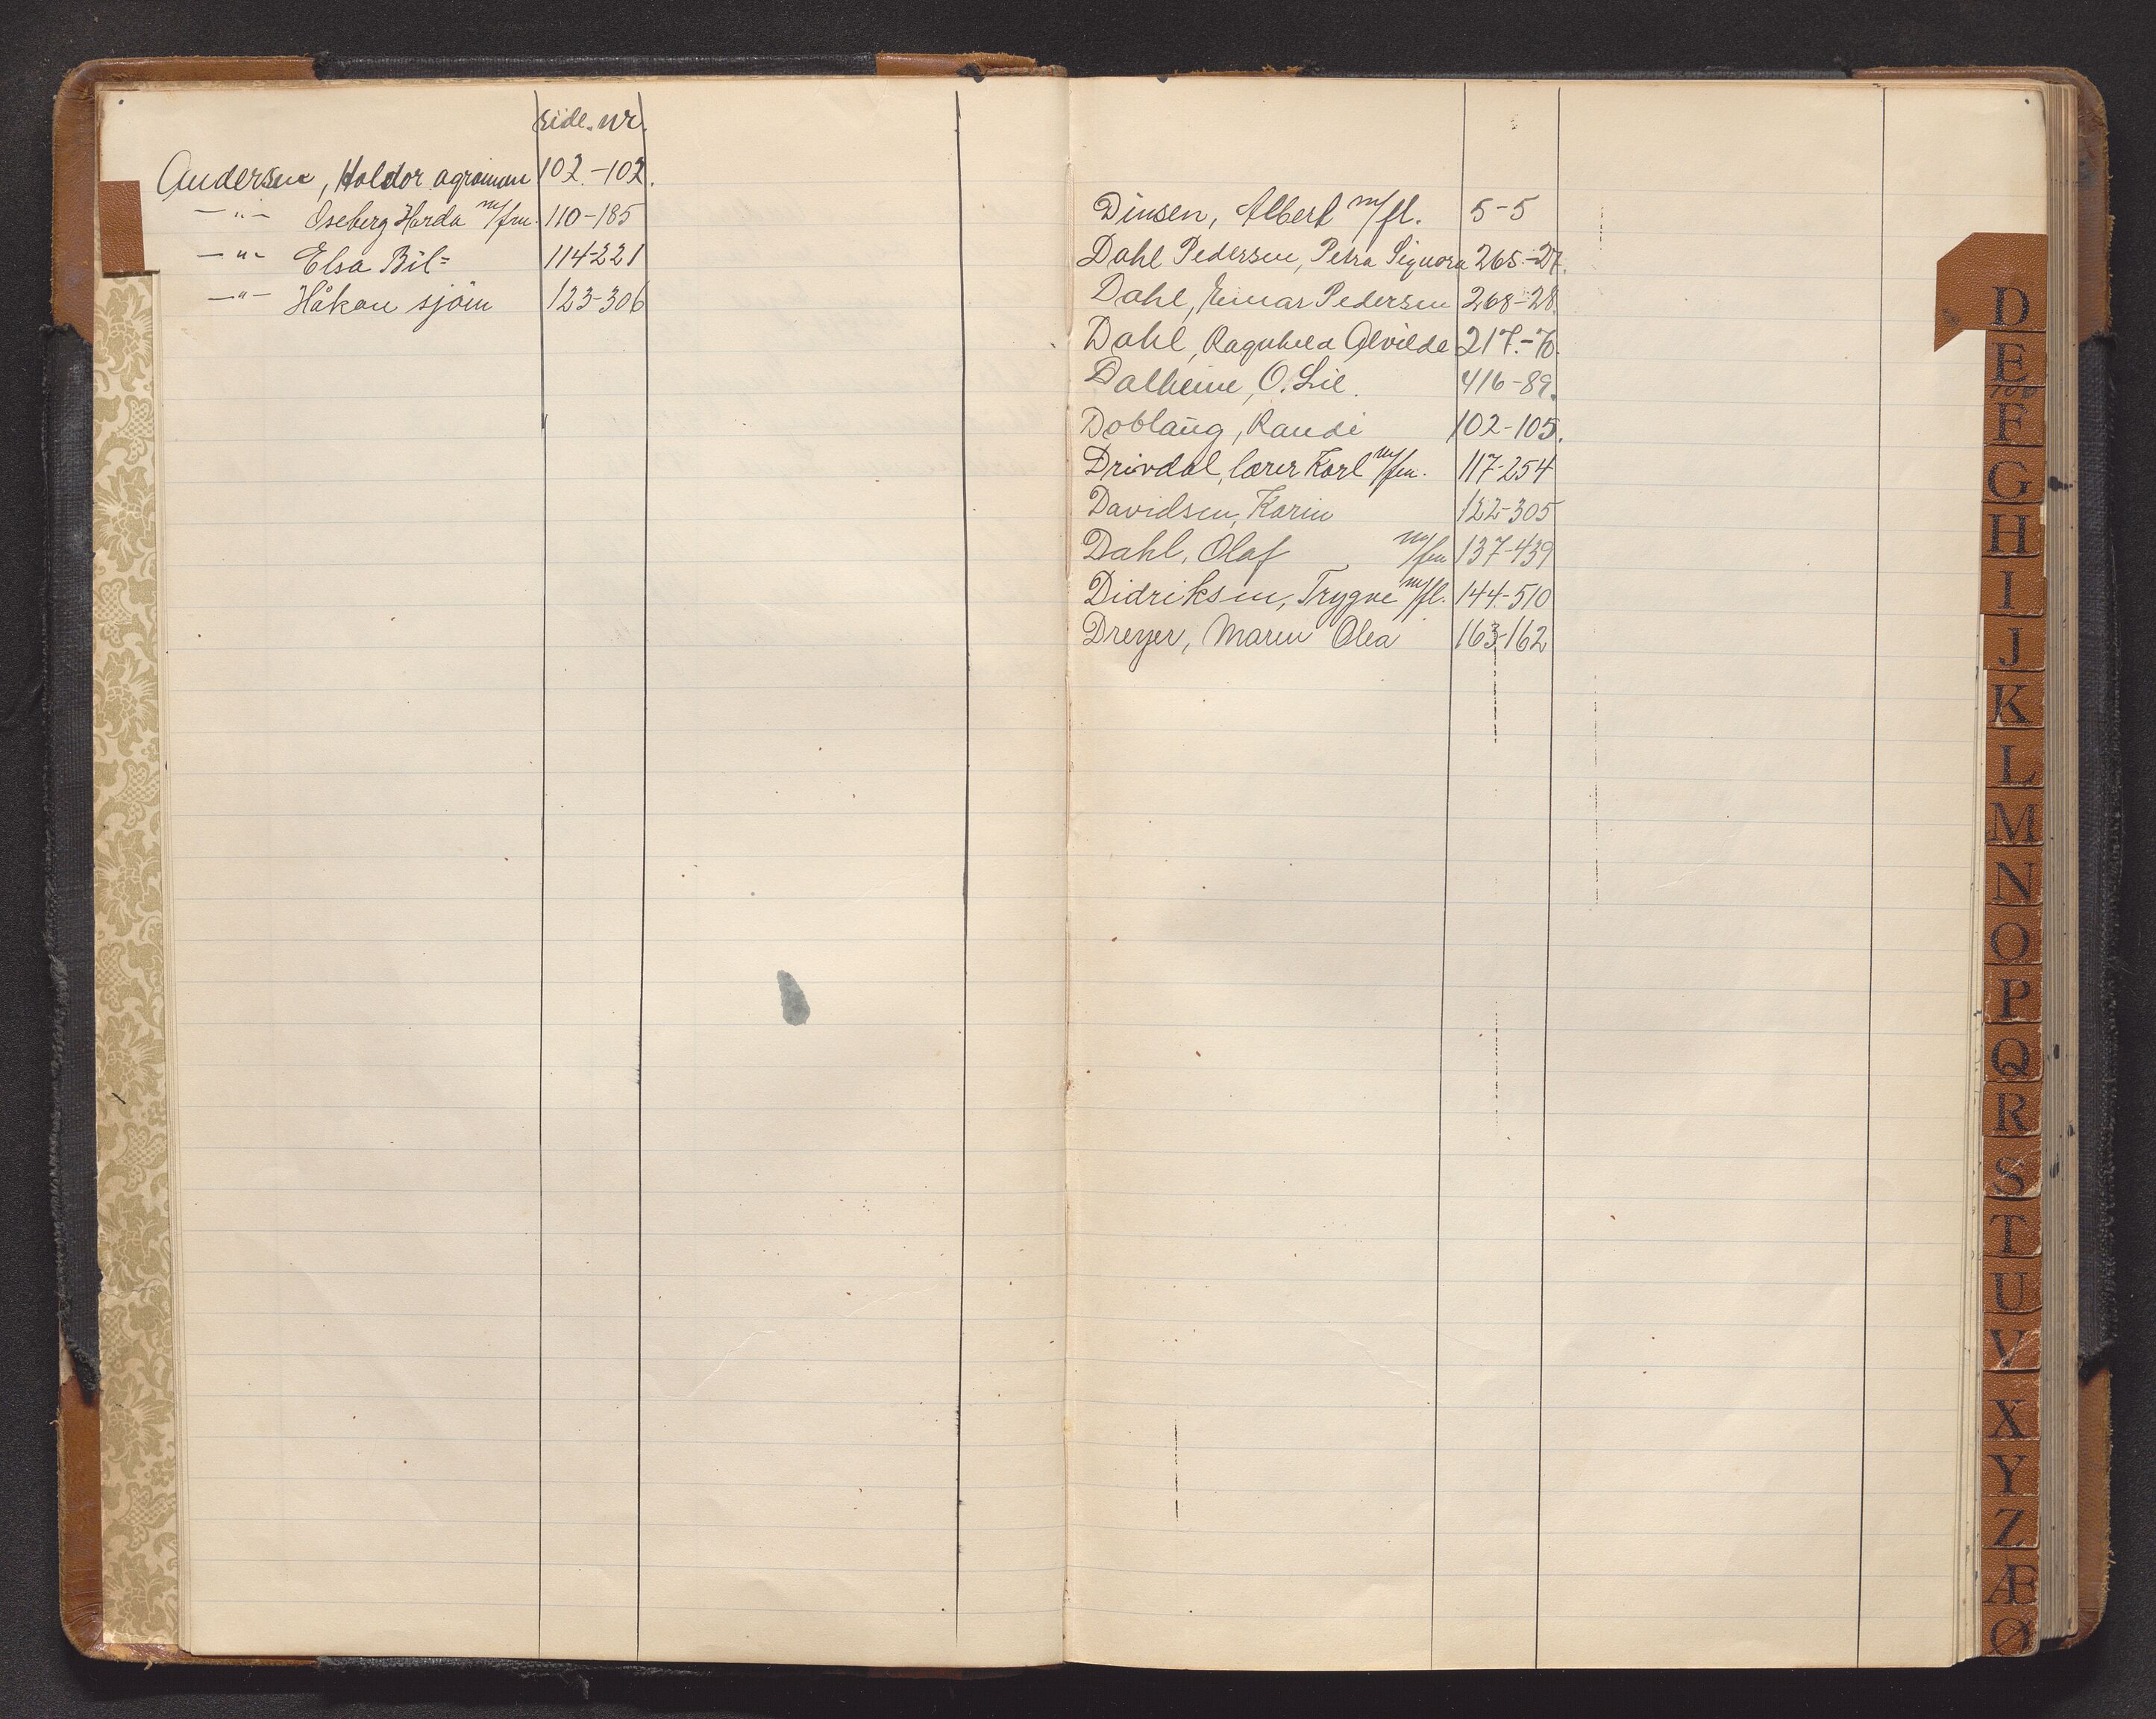 side. nr.
Andersen, Haldor agronom 102.-102.
-"- Oseberg Harda m/fru. 110-185
-"- Elsa Bil= 114-221
-"- Håkon sjöm 123-306
Dinsen, Albert m/fl. 5-5
Dahl Pedersen, Petra Signora 265.-27.
Dahl, Einar Pedersen 268-28.
Dahl, Ragnhild Alvilde 217.-76.
Dalheim, O. Lie. 416-89.
Doblaug, Randi 102-105.
Drivdal, lærer Karl m/fru. 117-254
Davidsen, Karin 122-305
Dahl, Olaf m/fru 137-439
Didriksen, Trygve m/fl. 144-510
Dreyer, Maren Olea 163-162
D
E
F
G
H
I
J
K
L
M
N
O
P
Q
R
S
T
U
V
X
Y
Z
Æ
Ø